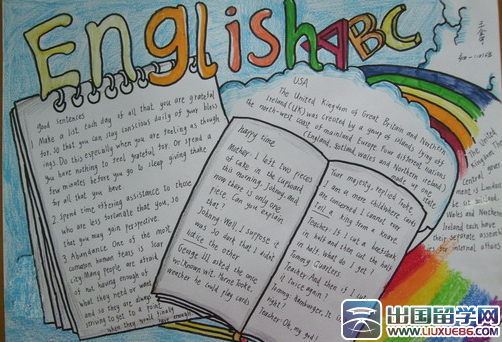 English ABC
good sentences
Make a list each day of all that you are grateful
for, so that you can stay conscious daily of your bless
ings. Do this especially when you are feeling as though
you have nothing to feel grateful for. Or spend a
few minutes before you go to sleep giving thanks
for all that you have
2 spend time offering assistance to those
who are less fortunate than you, so
that you may gain perspective.
3 Abundance One of the most
common human fears is scar
city. Many people are afraid
of not having enough of
what they need or want
and so they are always
striving to get to a point
when they would finally have enough
happy time
Mother: I left two pieces
of cake in the cupboard
this morning, Johnny, and
now there is only one
piece. Can you explain
that?
Johnny: Well, I suppose it
was so dark that I didn't
notice the other
George III asked the one
Horne Tooke,
whether he could play cards
Your majesty, replied Tooke,
I am a more child where cards
are concerned. I cannot even
tell a king from a knave.
Teacher: If I cut a beefsteak
in half and then cut the half
in half, what do I get?
Tommy: Quarters.
Teacher: And then if I cut
it twice again?
Tommy: hamburger.
Teacher: Oh, my god!
USA
The United Kingdom of Great Britain and Northern
Ireland (UK) was created by a group of islands lying off
the north-west coast of mainland Europe. Four different nations
(England, Scotland, Wales and Northern Ireland)
made up one state.
The United
King
central
ment is
be us
Wales and
Northern
Ireland each have
their separate assem
blies for internal affairs
出国留学网
www.liuxue86.com